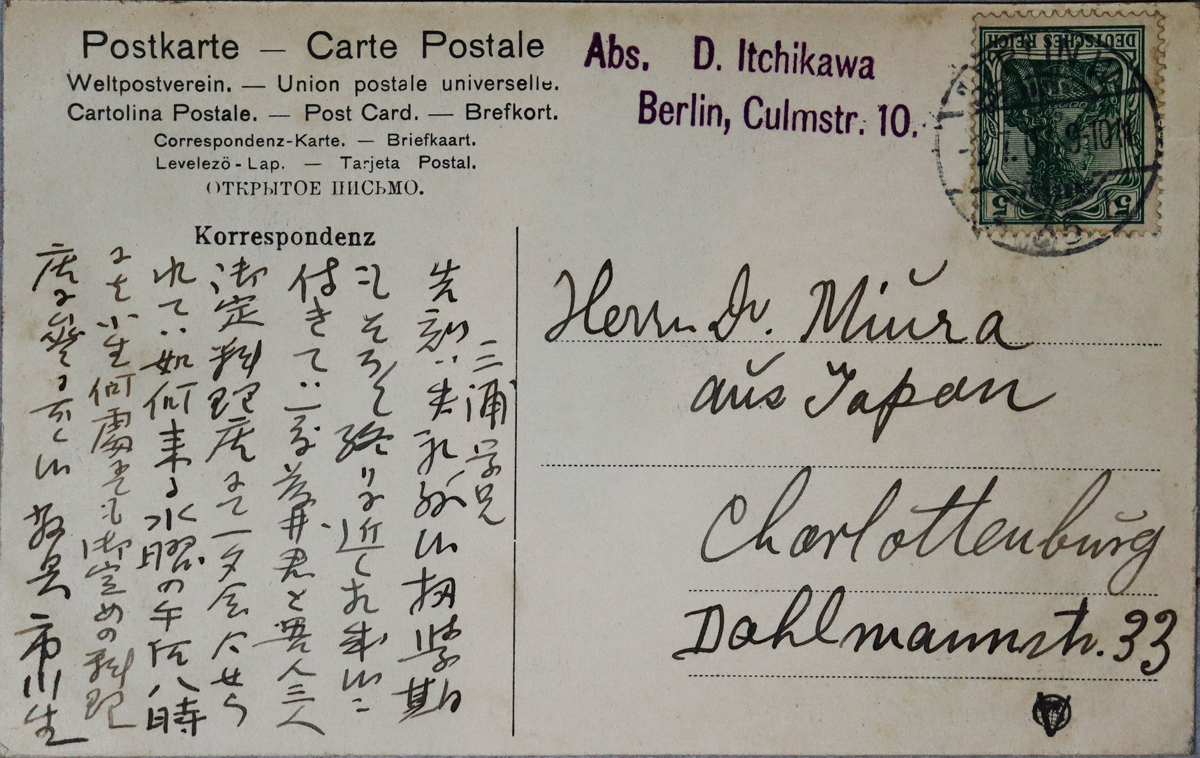 Postkarte — Carte Postale
Weltpostverein. — Union postale universelle.
Cartolina Postale. — Post Card. — Brefkort.
Correspondenz-Karte. — Briefkaart.
Levelező-Lap. — Tarjeta Postal.
ОТКРЫТОЕ ПИСЬМО.
Abs. D. Itchikawa
Berlin, Culmstr. 10.
DEUTSCHES REICH
5 5
9-10
Korrespondenz
三浦学兄
先刻ハ失礼致候扨学期
もそろそろ終りに近て
付きてハ一度 井君と吾人三人
御定料理店にて一夕会食せら
れてハ如何来る水曜の午后八時
にても小生何處にても御定めの料理
店に 市川生
Herrn Dr. Miura
aus Japan
Charlottenburg
Dahlmannstr. 33